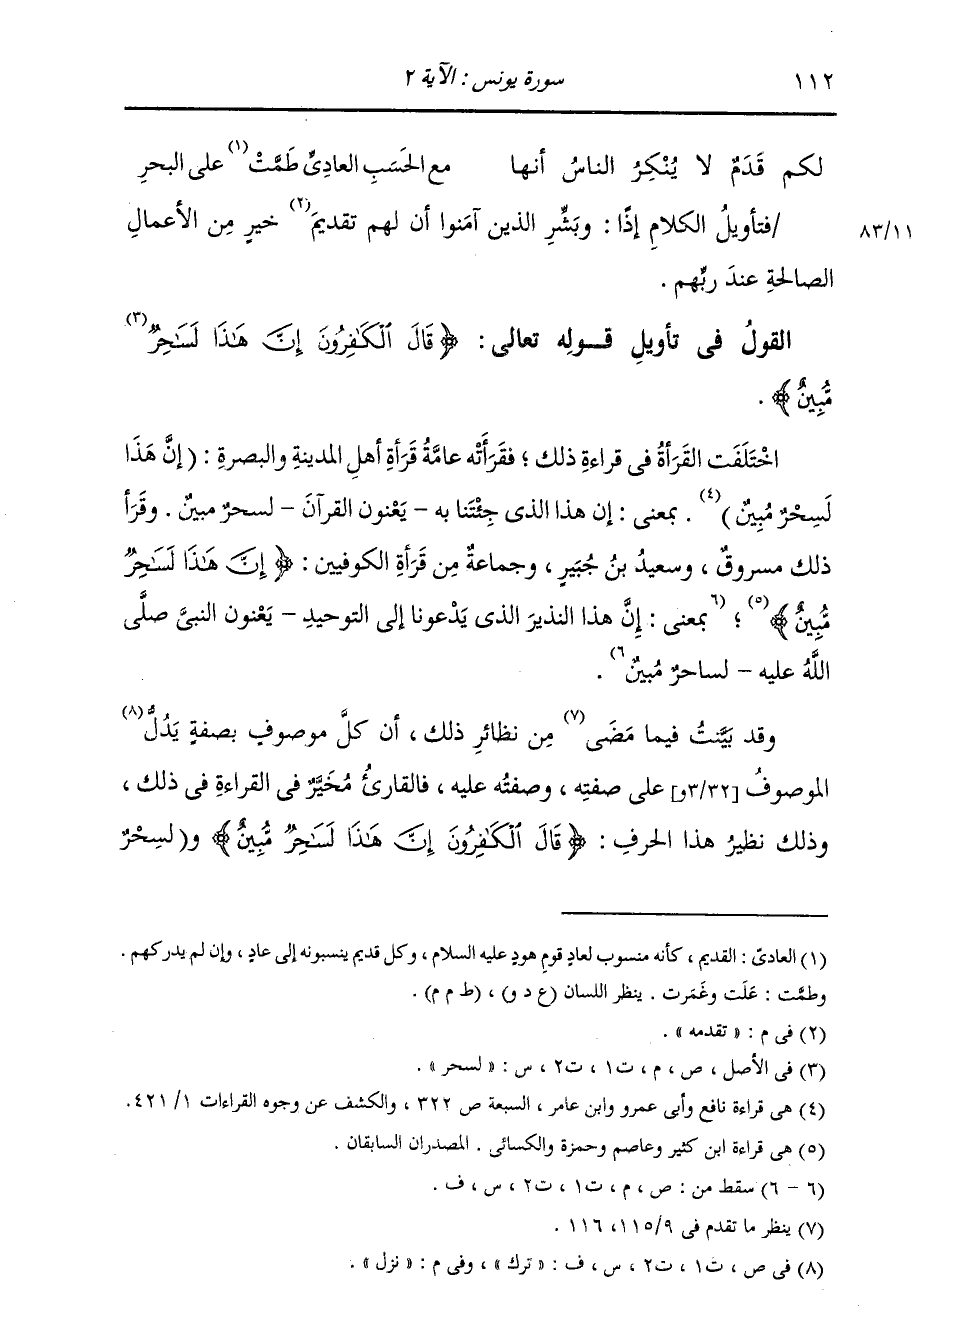 ١١٢ سورة يونس : الآية ٢
لكم قَدَمٌ لا يُنْكِرُ الناسُ أنها مع الحَسَبِ العادِىِّ طَمَّتْ(١) على البحرِ
٨٣/١١ /فتأويلُ الكلامِ إذًا : وبَشِّرِ الذين آمَنوا أن لهم تقديمَ(٢) خيرٍ مِن الأعمالِ
الصالحةِ عندَ ربِّهم .
القولُ فى تأويلِ قولِه تعالى : ﴿ قَالَ ٱلْكَـٰفِرُونَ إِنَّ هَـٰذَا لَسَـٰحِرٌ(٣)
مُّبِينٌ ﴾ .
اخْتَلَفَت القَرَأةُ فى قراءةِ ذلك ؛ فقَرَأَتْه عامَّةُ قَرَأةِ أهلِ المدينةِ والبصرةِ : (إِنَّ هَذَا
لَسِحْرٌ مُبِينٌ)(٤) . بمعنى : إن هذا الذى جِئْتَنا به - يَعْنون القرآنَ - لسحرٌ مبينٌ . وقَرَأ
ذلك مسروقٌ ، وسعيدُ بنُ جُبَيرٍ ، وجماعةٌ مِن قَرَأةِ الكوفيين : ﴿ إِنَّ هَـٰذَا لَسَـٰحِرٌ
مُّبِينٌ ﴾(٥) ؛ (٦بمعنى : إنَّ هذا النذيرَ الذى يَدْعونا إلى التوحيدِ - يَعْنون النبىَّ صلَّى
اللَّهُ عليه - لساحرٌ مُبينٌ٦) .
وقد بَيَّنتُ فيما مَضَى(٧) مِن نظائرِ ذلك ، أن كلَّ موصوفٍ بصفةٍ يَدُلُّ(٨)
الموصوفُ [٣/٣٢و] على صفتِه ، وصفتُه عليه ، فالقارئُ مُخَيَّرٌ فى القراءةِ فى ذلك ،
وذلك نظيرُ هذا الحرفِ : ﴿ قَالَ ٱلْكَـٰفِرُونَ إِنَّ هَـٰذَا لَسَـٰحِرٌ مُّبِينٌ ﴾ و(لسِحْرٌ
(١) العادىّ : القديم ، كأنه منسوب لعادٍ قومِ هودٍ عليه السلام ، وكل قديم ينسبونه إلى عادٍ ، وإن لم يدركهم .
وطمَّت : عَلَت وغَمَرت . ينظر اللسان (ع د و) ، (ط م م) .
(٢) فى م : « تقدمه » .
(٣) فى الأصل ، ص ، م ، ت١ ، ت٢ ، س : « لسحر » .
(٤) هى قراءة نافع وأبى عمرو وابن عامر ، السبعة ص ٣٢٢ ، والكشف عن وجوه القراءات ١/ ٤٢١.
(٥) هى قراءة ابن كثير وعاصم وحمزة والكسائى . المصدران السابقان .
(٦ - ٦) سقط من : ص ، م ، ت١ ، ت٢ ، س ، ف .
(٧) ينظر ما تقدم فى ١١٥/٩، ١١٦ .
(٨) فى ص ، ت١ ، ت٢ ، س ، ف : « ترك » ، وفى م : « نزل » .